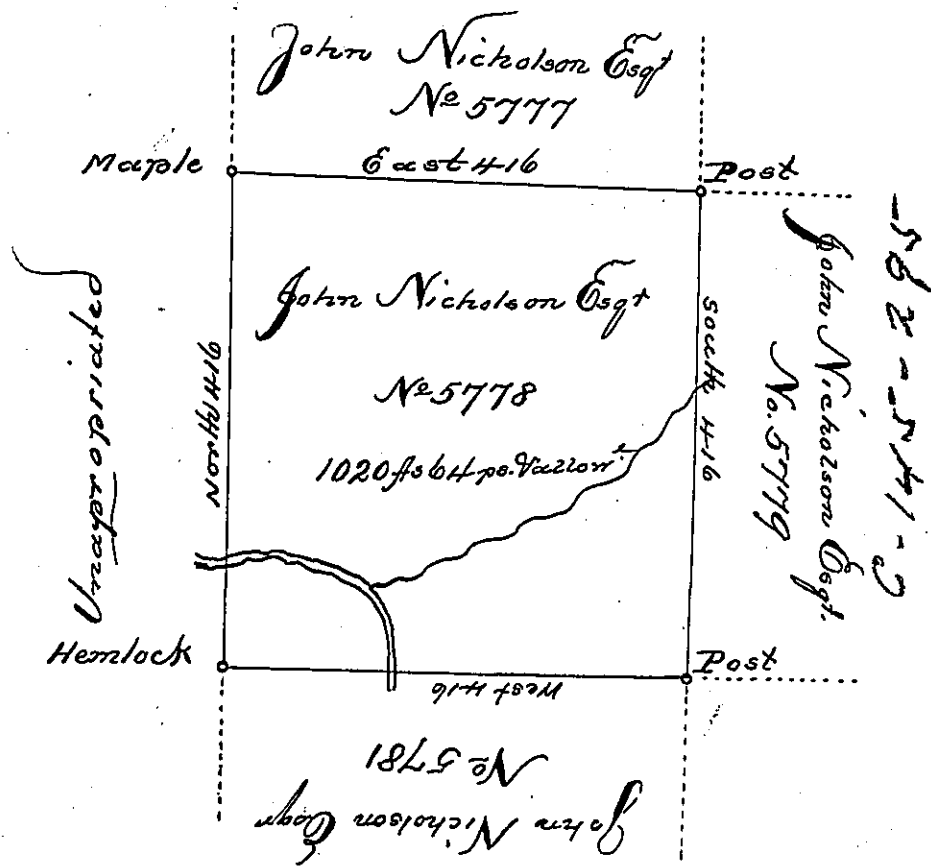 John Nicholson Esqr
No 5777
Maple
East 416
Post
Unapropriated
North 416
John Nicholson Esqr
No 5778
1020 As 64 ps. & allowt.
South 416
John Nicholson Esqr.
No. 5779
Hemlock
West 416
Post
John Nicholson Esqr
No 5781